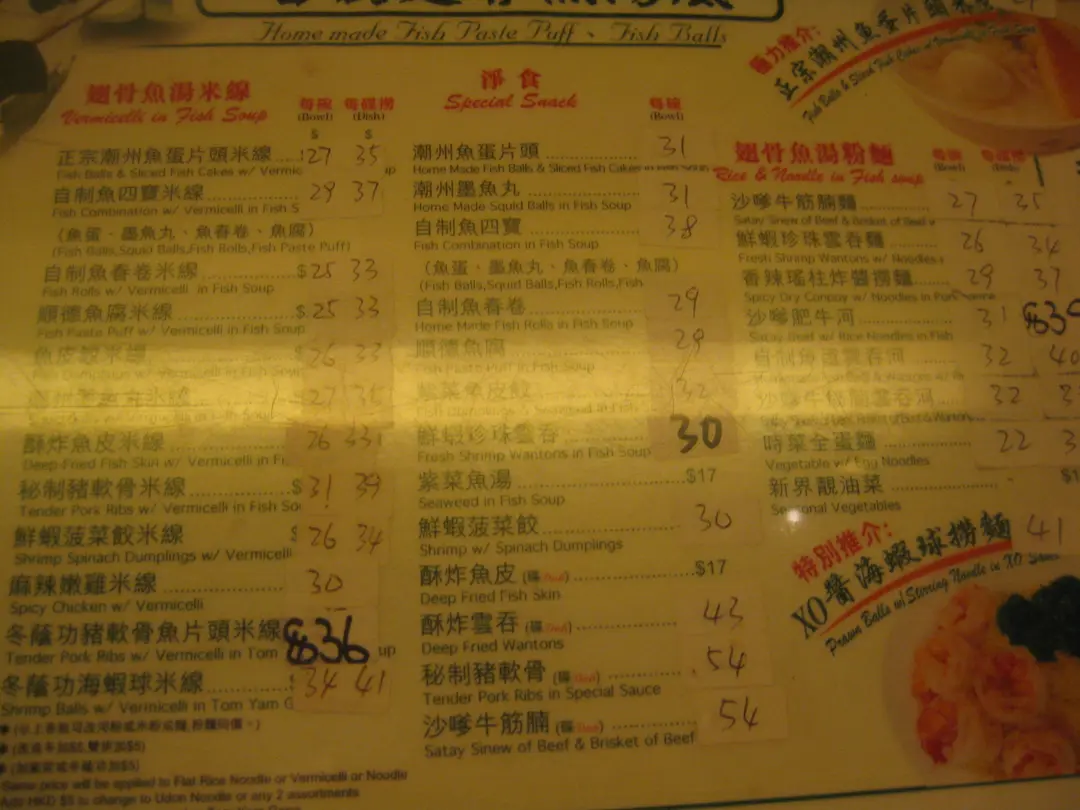 Home made Fish Paste Puff、Fish Balls
翅骨魚湯米線 每碗 每碟撈
Vermicelli in Fish Soup (Bowl) (Dish)
$ $
正宗潮州魚蛋片頭米線 27 35
Fish Balls & Sliced Fish Cakes w/ Vermic
自制魚四寶米線 29 37
Fish Combination w/ Vermicelli in Fish S
(魚蛋、墨魚丸、魚春卷、魚腐)
(Fish Balls,Squid Balls,Fish Rolls,Fish Paste Puff)
自制魚春卷米線 $25 33
Fish Rolls w/ Vermicelli in Fish Soup
順德魚腐米線 $25 33
Fish Paste Puff w/ Vermicelli in Fish Soup
魚皮餃米線 $26 33
27 35
酥炸魚皮米線 26 33
Deep Fried Fish Skin w/ Vermicelli in Fi
秘制豬軟骨米線 $31 39
Tender Pork Ribs w/ Vermicelli in Fish So
鮮蝦菠菜餃米線 26 34
Shrimp Spinach Dumplings w/ Vermicelli
麻辣嫩雞米線 30
Spicy Chicken w/ Vermicelli
冬蔭功豬軟骨魚片頭米線 $36
Tender Pork Ribs w/ Vermicelli in Tom up
冬蔭功海蝦球米線 34 41
Shrimp Balls w/ Vermicelli in Tom Yam
Same price will be applied to Flat Rice Noodle or Vermicelli or Noodle
Add HKD $5 to change to Udon Noodle or any 2 assortments
淨食 每碗
Special Snack (Bowl)
潮州魚蛋片頭 31
Home Made Fish Balls & Sliced Fish Cakes in Fish Soup
潮州墨魚丸 31
Home Made Squid Balls in Fish Soup
自制魚四寶 38
Fish Combination in Fish Soup
(魚蛋、墨魚丸、魚春卷、魚腐)
(Fish Balls,Squid Balls,Fish Rolls,Fish
自制魚春卷 29
Home Made Fish Rolls in Fish Soup
順德魚腐 29
Fish Paste Puff in Fish Soup
紫菜魚皮餃 32
鮮蝦珍珠雲吞 30
Fresh Shrimp Wantons in Fish Soup
紫菜魚湯 $17
Seaweed in Fish Soup
鮮蝦菠菜餃 30
Shrimp w/ Spinach Dumplings
酥炸魚皮 $17
Deep Fried Fish Skin
酥炸雲吞 43
Deep Fried Wantons
秘制豬軟骨 54
Tender Pork Ribs in Special Sauce
沙嗲牛筋腩 54
Satay Sinew of Beef & Brisket of Beef
極力推介:
正宗潮州魚蛋片頭
Fish Balls & Sliced Fish Cakes
翅骨魚湯粉麵
Rice & Noodle in Fish soup
沙嗲牛筋腩麵 27 35
Satay Sinew of Beef & Brisket of Beef w
鮮蝦珍珠雲吞麵 26 34
Fresh Shrimp Wantons w/ Noodles
香辣瑤柱炸醬撈麵 29 37
Spicy Dry Conpoy w/ Noodles in Pork
沙嗲肥牛河 31 $39
Satay Beef w/ Rice Noodles in Fish
自制魚蛋雲吞河 32 40
32
時菜全蛋麵 22
Vegetable w/ Egg Noodles
新界靚油菜
Seasonal Vegetables
特別推介:
XO醬海蝦球撈麵 41
Prawn Balls w/ Stirring Noodle in XO Sauce